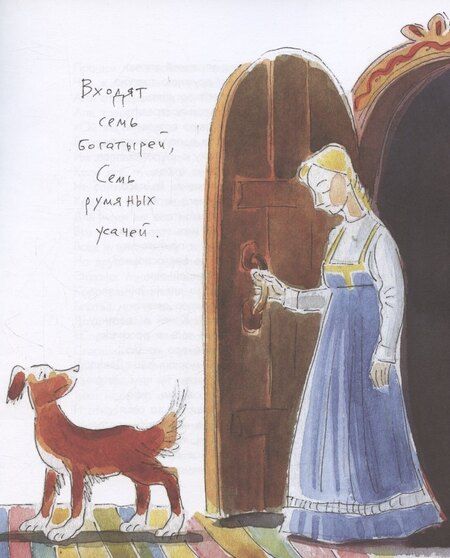 Входят
семь
богатырей,
Семь
румяных
усачей.